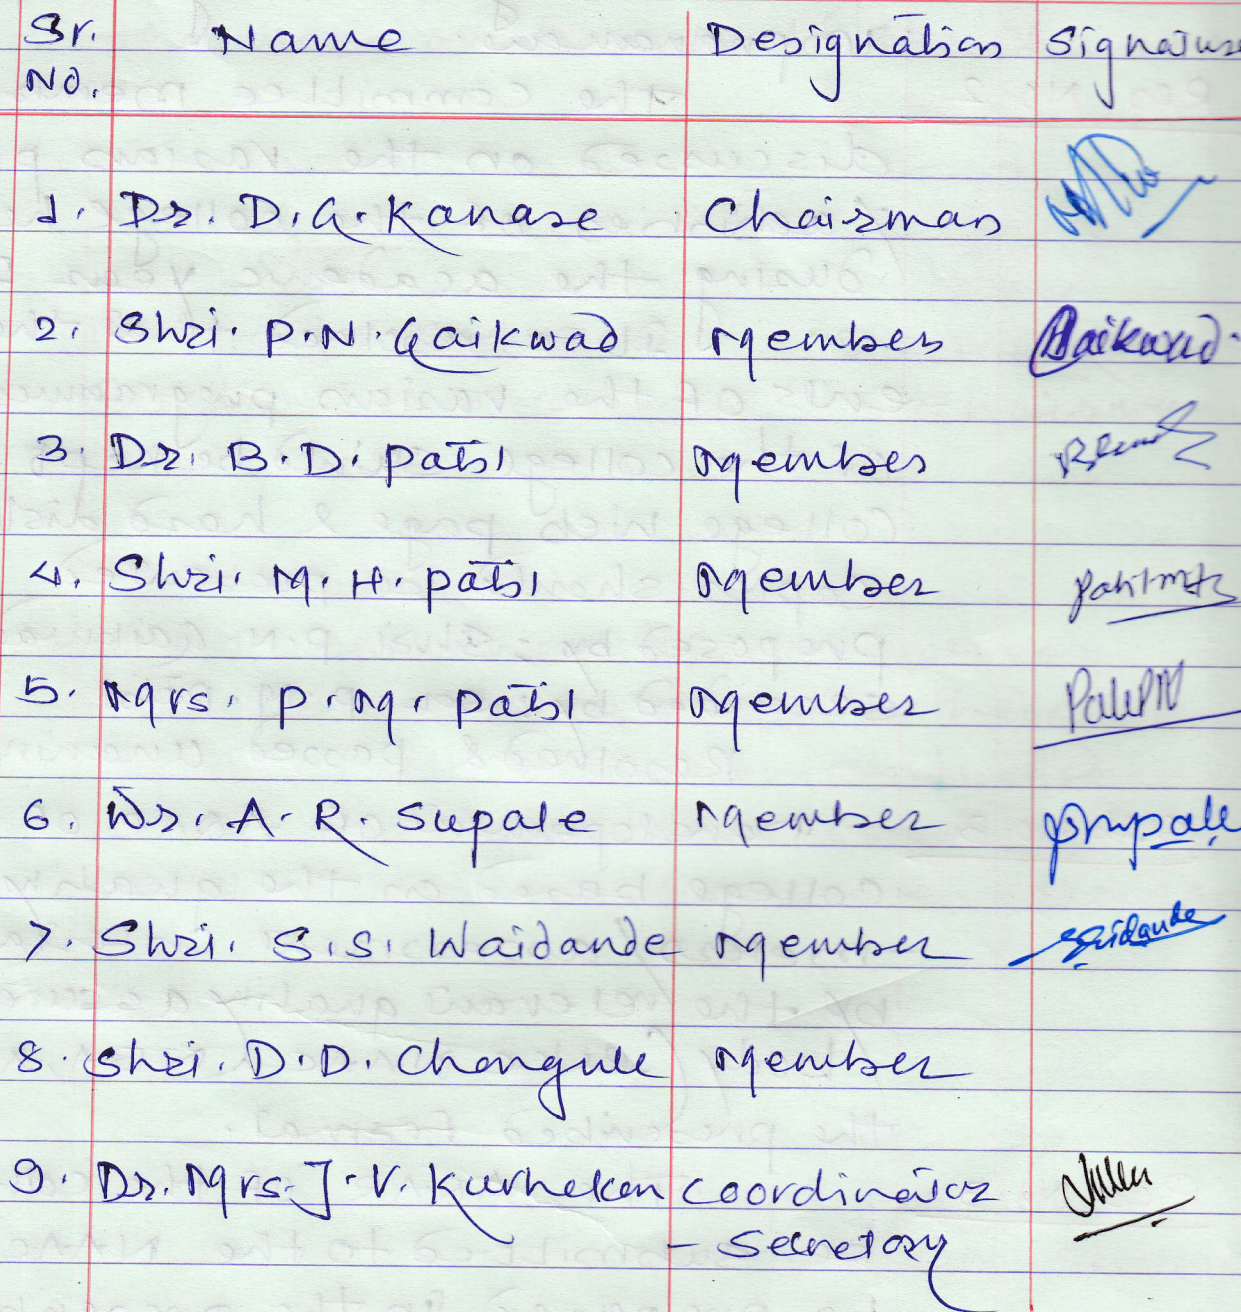 Sr. No. Name Designation Signature
1. Dr. D. G. Kanase Chairman
2. Shri. P. N. Gaikwad Member Gaikwad
3. Dr. B. D. Patil Member
4. Shri. M. H. Patil Member Patil MH
5. Mrs. P. M. Patil Member Patil PM
6. Dr. A. R. Supale Member Supale
7. Shri. S. S. Waidande Member Waidande
8. Shri. D. D. Chougule Member
9. Dr. Mrs. J. V. Kurhekar Coordinator
- Secretary